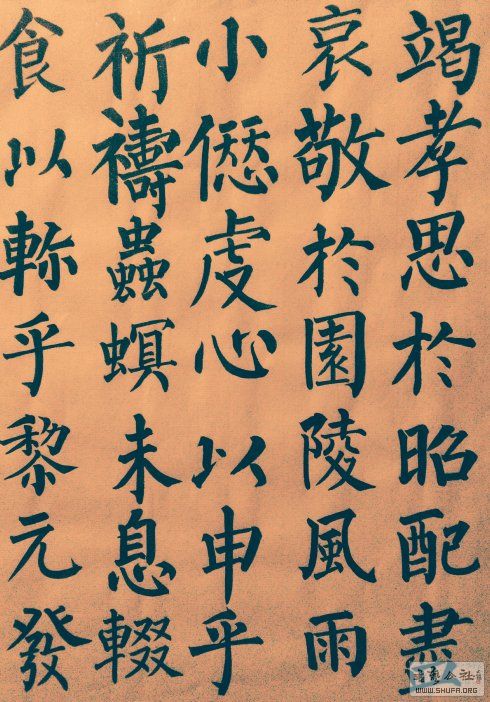 竭孝思於昭配盡
哀敬於園陵風雨
小愆虔心以申乎
祈禱蟲螟未息輟
食以軫乎黎元發
WWW.SHUFA.ORG